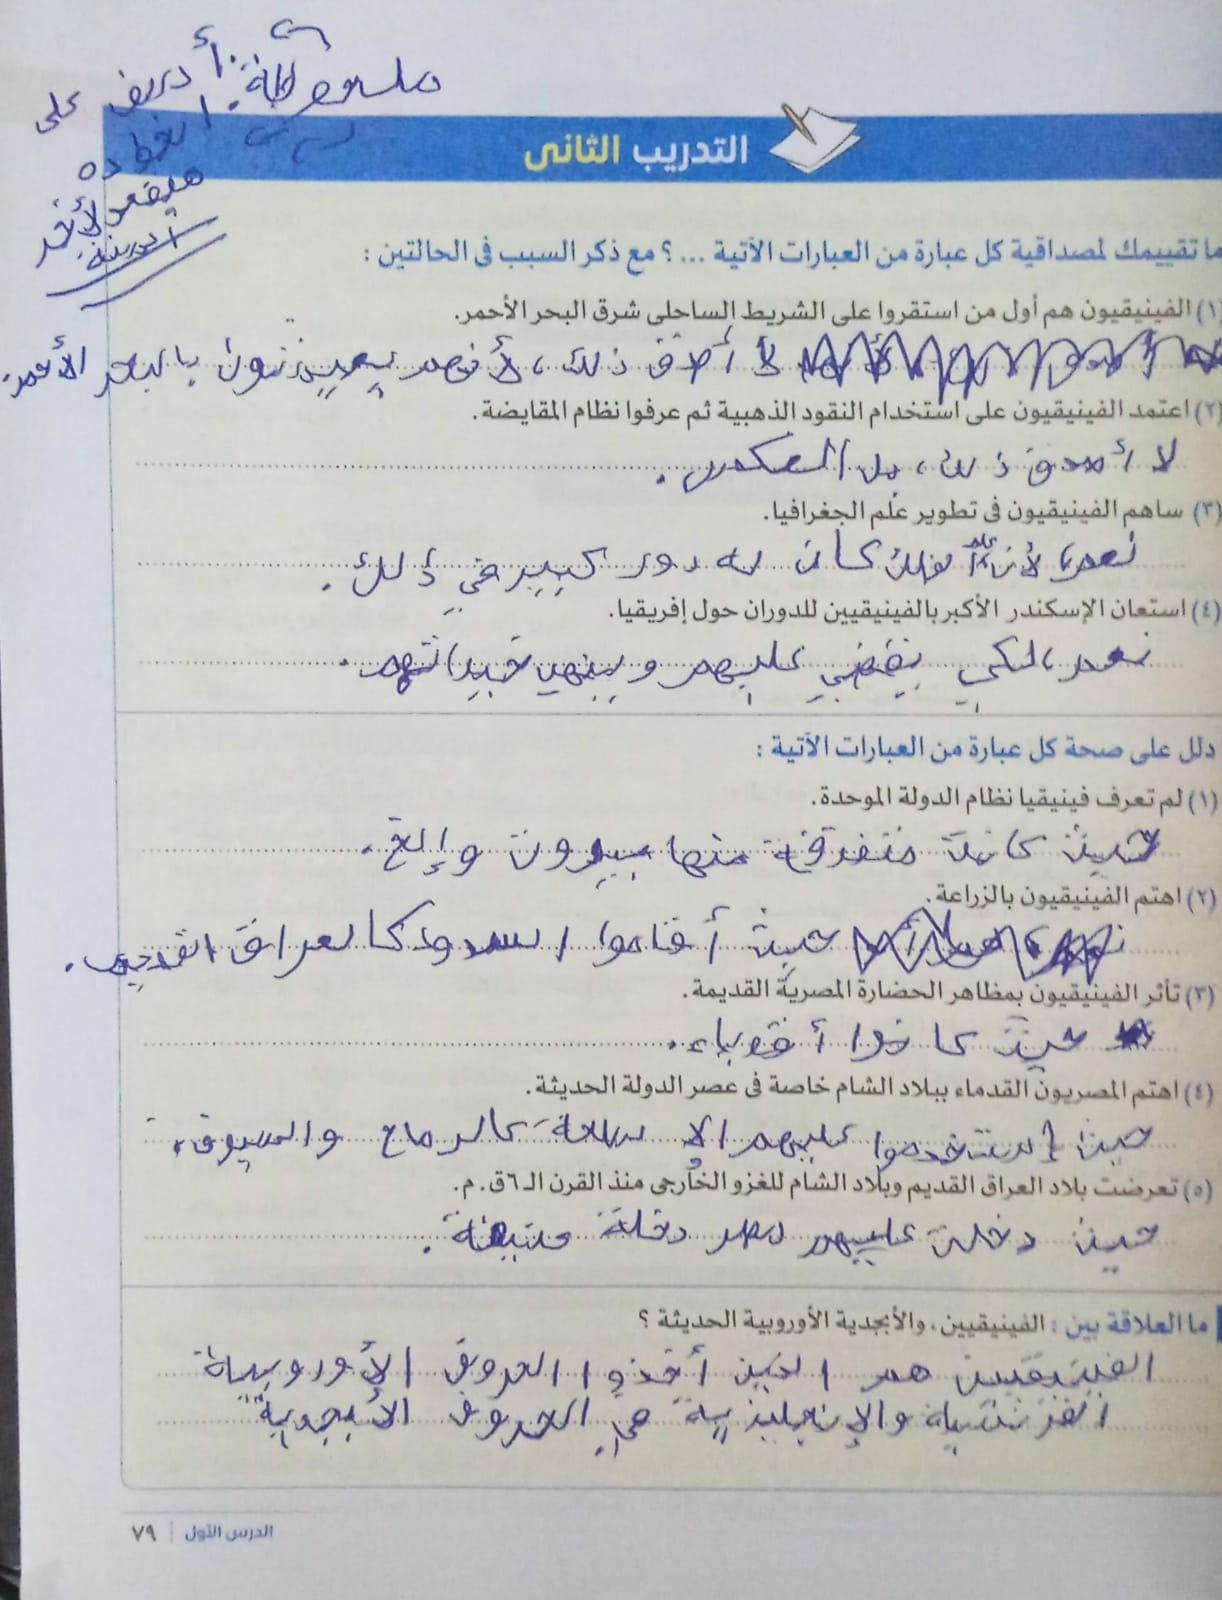 ملحوظة: أ. شريف على
الخط ده
هيقعد لأخر
السنة
التدريب الثانى
ما تقييمك لمصداقية كل عبارة من العبارات الآتية ... ؟ مع ذكر السبب فى الحالتين :
(١) الفينيقيون هم أول من استقروا على الشريط الساحلى شرق البحر الأحمر.
لا أصدق ذلك، لأنهم يعيشون بالبحر الأحمر
(٢) اعتمد الفينيقيون على استخدام النقود الذهبية ثم عرفوا نظام المقايضة.
لا أصدق ذلك، بل العكس.
(٣) ساهم الفينيقيون فى تطوير علم الجغرافيا.
نعم، لأن كان له دور كبير في ذلك.
(٤) استعان الإسكندر الأكبر بالفينيقيين للدوران حول إفريقيا.
نعم، لكي يقضي عليهم وينهي
دلل على صحة كل عبارة من العبارات الآتية :
(١) لم تعرف فينيقيا نظام الدولة الموحدة.
حيث كانت متفرقة منها بيروت وإلخ.
(٢) اهتم الفينيقيون بالزراعة.
حيث أقاموا السدود كالعراق القديم.
(٣) تأثر الفينيقيون بمظاهر الحضارة المصرية القديمة.
حيث كانوا أقوياء.
(٤) اهتم المصريون القدماء ببلاد الشام خاصة فى عصر الدولة الحديثة.
حيث إستخدموا عليهم الأسلحة كالرماح والسيوف.
(٥) تعرضت بلاد العراق القديم وبلاد الشام للغزو الخارجى منذ القرن الـ ٦ق. م.
حيث دخلت عليهم مصر دخلة
ما العلاقة بين : الفينيقيين، والأبجدية الأوروبية الحديثة ؟
الفينيقين هم الذين أخذوا الحروف الأوروبية
الفرنسية والإنجليزية في الحروف الأبجدية
الدرس الأول | ٧٩